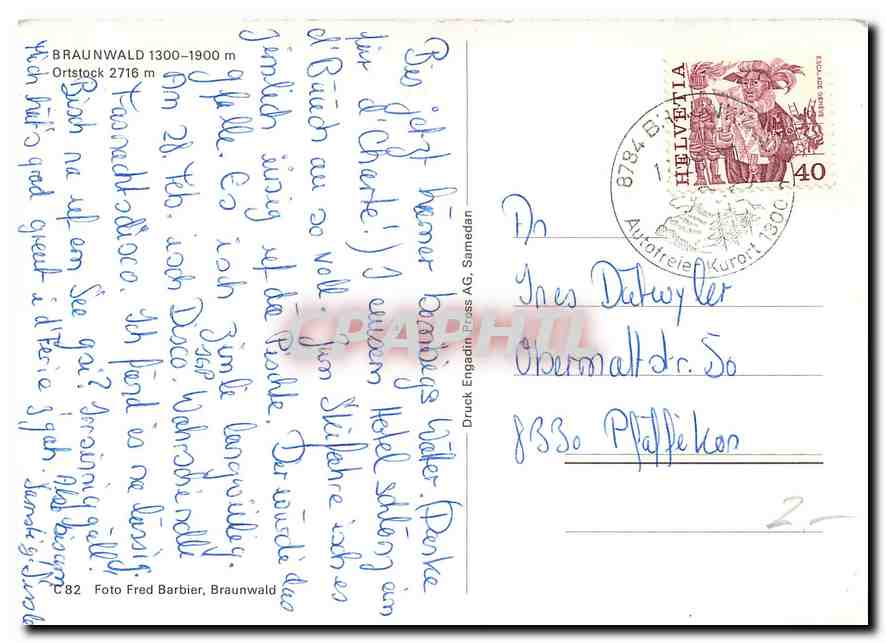 BRAUNWALD 1300–1900 m
Ortstock 2716 m
Bis jetzt hämer bäumigs Wätter. (Danke
für d'Charte!) I eusem Hotel schlönz ein
d'Büüch au so voll. Zum Skifahre isch es
zimlich iisig uf de Pischte. Der würdi das
gfalle. Es isch zimli langwiilig.
Am 28. Feb. isch Disco. Wahrschindli
Fasnachtsdisco. Ich fänd es no lässig.
Bisch no uf em See gsi? Irrsinnig gäll!
Mich hät's grad greut i d'Ferie z'gah. Also bis am
Samstig. Tschau
C 82 Foto Fred Barbier, Braunwald
Druck Engadin Press AG, Samedan
HELVETIA
ESCALADE GENÈVE
40
8784
Autofreier Kurort 1300
An
Ines Dätwyler
Obermattstr. 50
8330 Pfäffikon
2.-
CPAPHIL